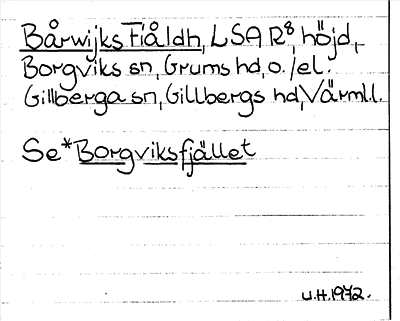 Bårwijks Fiåldh, LSA R8, höjd,
Borgviks sn, Grums hd, o./el.
Gillberga sn, Gillbergs hd, Värml.
Se *Borgviksfjället
U.H. 1972.